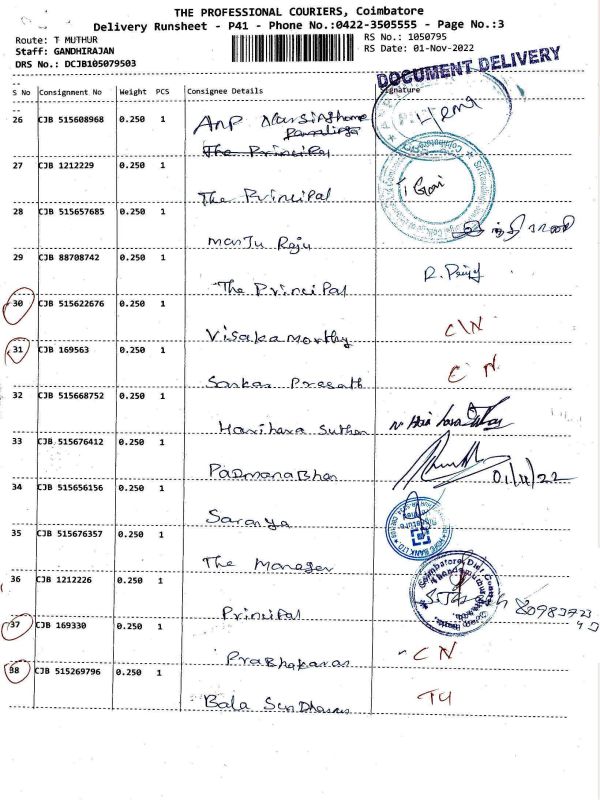 THE PROFESSIONAL COURIERS, Coimbatore
Delivery Runsheet - P41 - Phone No.:0422-3505555 - Page No.:3
Route: T MUTHUR
RS No.: 1050795
Staff: GANDHIRAJAN
RS Date: 01-Nov-2022
DRS No.: DCJB105079503
DOCUMENT DELIVERY
S No Consignment No Weight PCS Consignee Details Signature
26 CJB 515608968 0.250 1 ANP
Hema
The Principal
27 CJB 1212229 0.250 1
The Principal
28 CJB 515657685 0.250 1
Manju Raju
29 CJB 88708742 0.250 1
The Principal
30 CJB 515622676 0.250 1
Visakamorthy C/N
31 CJB 169563 0.250 1
Sankar Prasath C N
32 CJB 515668752 0.250 1
Harihara Suthan
33 CJB 515676412 0.250 1
Padmanabhan 01/11/22
34 CJB 515656156 0.250 1
Saranya
35 CJB 515676357 0.250 1
HDFC BANK LTD.
The Manager
36 CJB 1212226 0.250 1
Principal
37 CJB 169330 0.250 1
Prabhakaran CN
38 CJB 515269796 0.250 1
Bala Sundharam